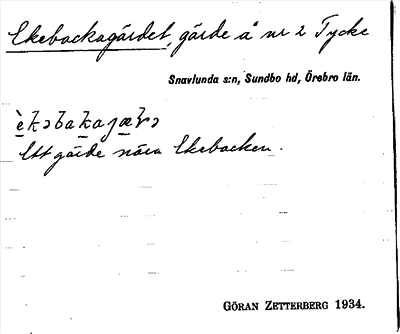 Ekebackagärdet, gärde å nr 2 Tycke
Snavlunda s:n, Sundbo hd, Örebro län.
Ett gärde nära Ekebacken.
GÖRAN ZETTERBERG 1934.